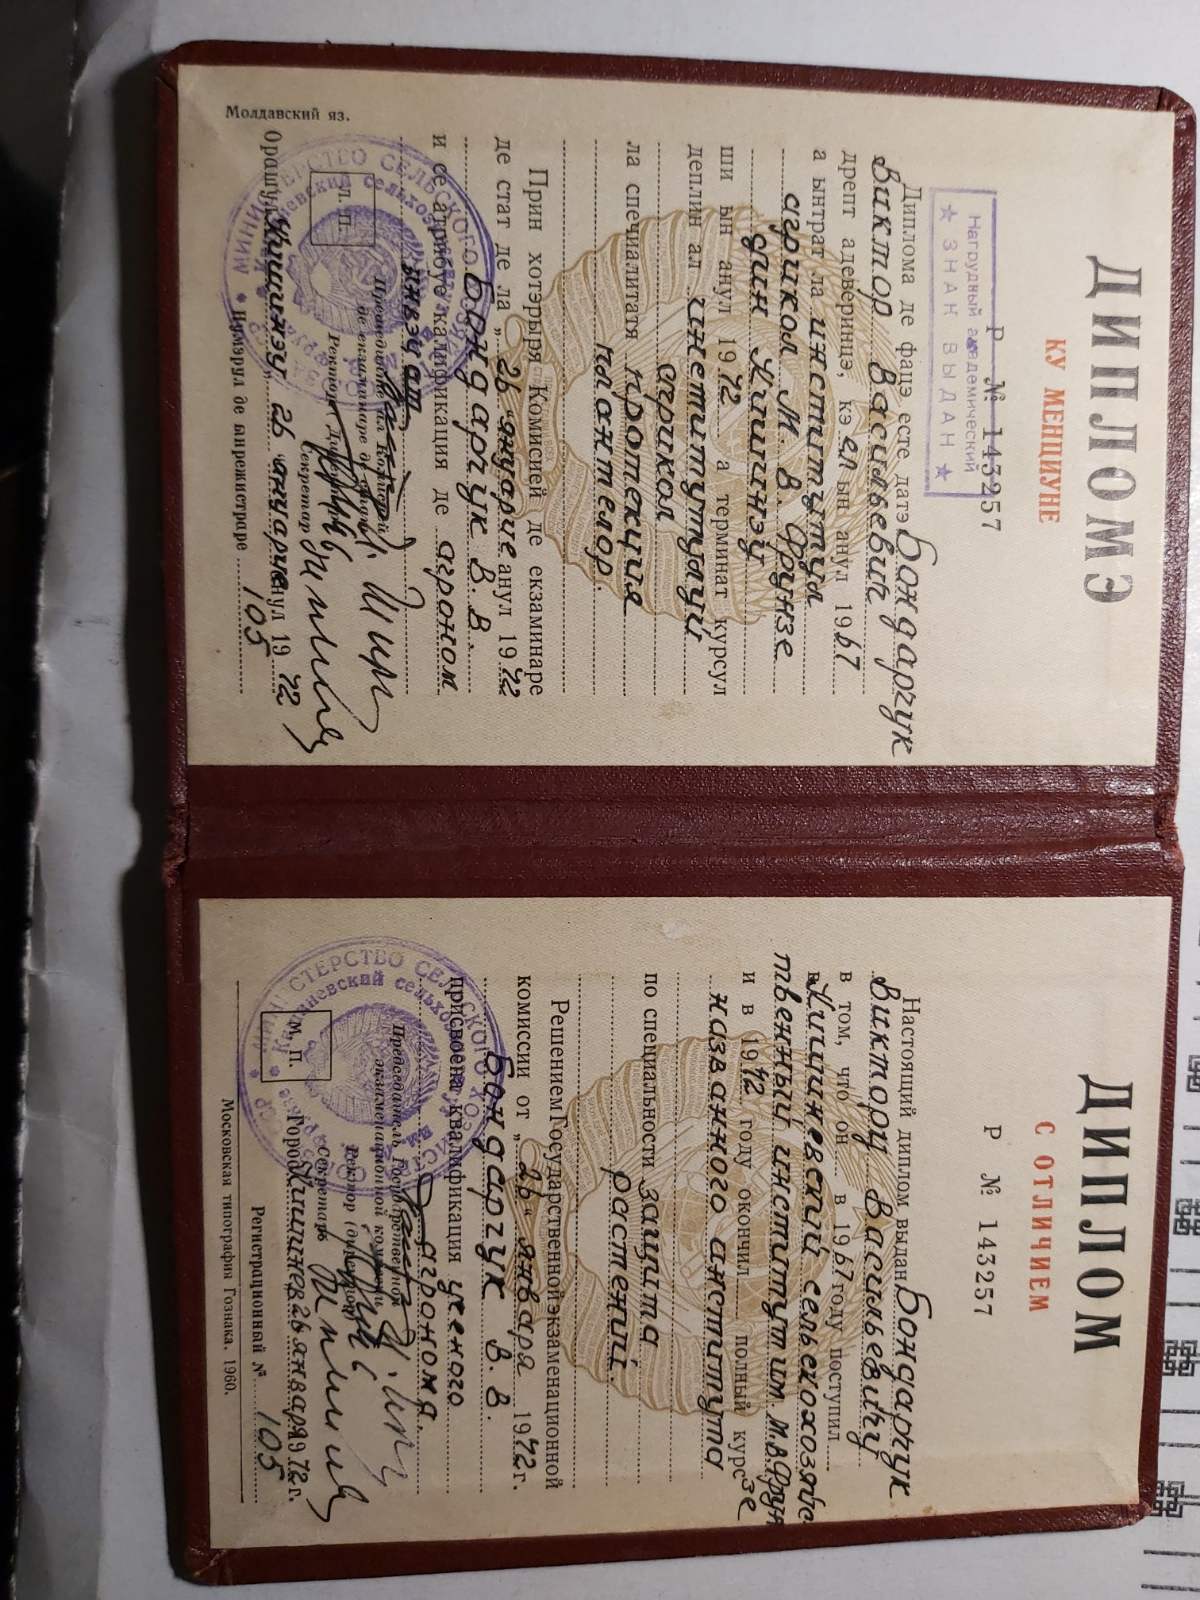 ДИПЛОМЭ
КУ МЕНЦИУНЕ
Р № 143257
Нагрудный академический
★ ЗНАК ВЫДАН ★
Диплома де фацэ есте датэ Бондарчук
Виктор Васильевич
дрепт адеверинцэ, кэ ел ын анул 1967
а ынтрат ла институтул
агрикол М. В. Фрунзе
дин Кишинэу
ши ын анул 1972 а терминат курсул
деплин ал институтулуй
агрикол
ла специалитатя протекция
плантелор.
Прин хотэрыря Комисией де екзаминаре
де стат де ла „26" януарие анул 1972
Бондарчук В. В.
и се атрибуе калификация де агроном
ынвэцат
Председинтеле Комисией
де екзаминаре де стат
Ректор (Директор)
Секретар
Л. П.
Орашул Кишинэу 26 януарие анул 1972
Нумэрул де ынрежистраре 105
Молдавский яз.
ДИПЛОМ
С ОТЛИЧИЕМ
Р № 143257
Настоящий диплом выдан Бондарчук
Виктору Васильевичу
в том, что он в 1967 году поступил
в Кишиневский сельскохозяйс
твенный институт им. М.В.Фрун
зе
и в 1972 году окончил полный курс
названного института
по специальности защита
растений.
Решением Государственной экзаменационной
комиссии от „26" января 1972 г.
Бондарчук В. В.
присвоена квалификация ученого
агронома.
Председатель Государственной
экзаменационной комиссии
Ректор (директор)
Секретарь
М. П.
Город Кишинев 26 января 1972 г.
Регистрационный № 105
Московская типография Гознака. 1960.